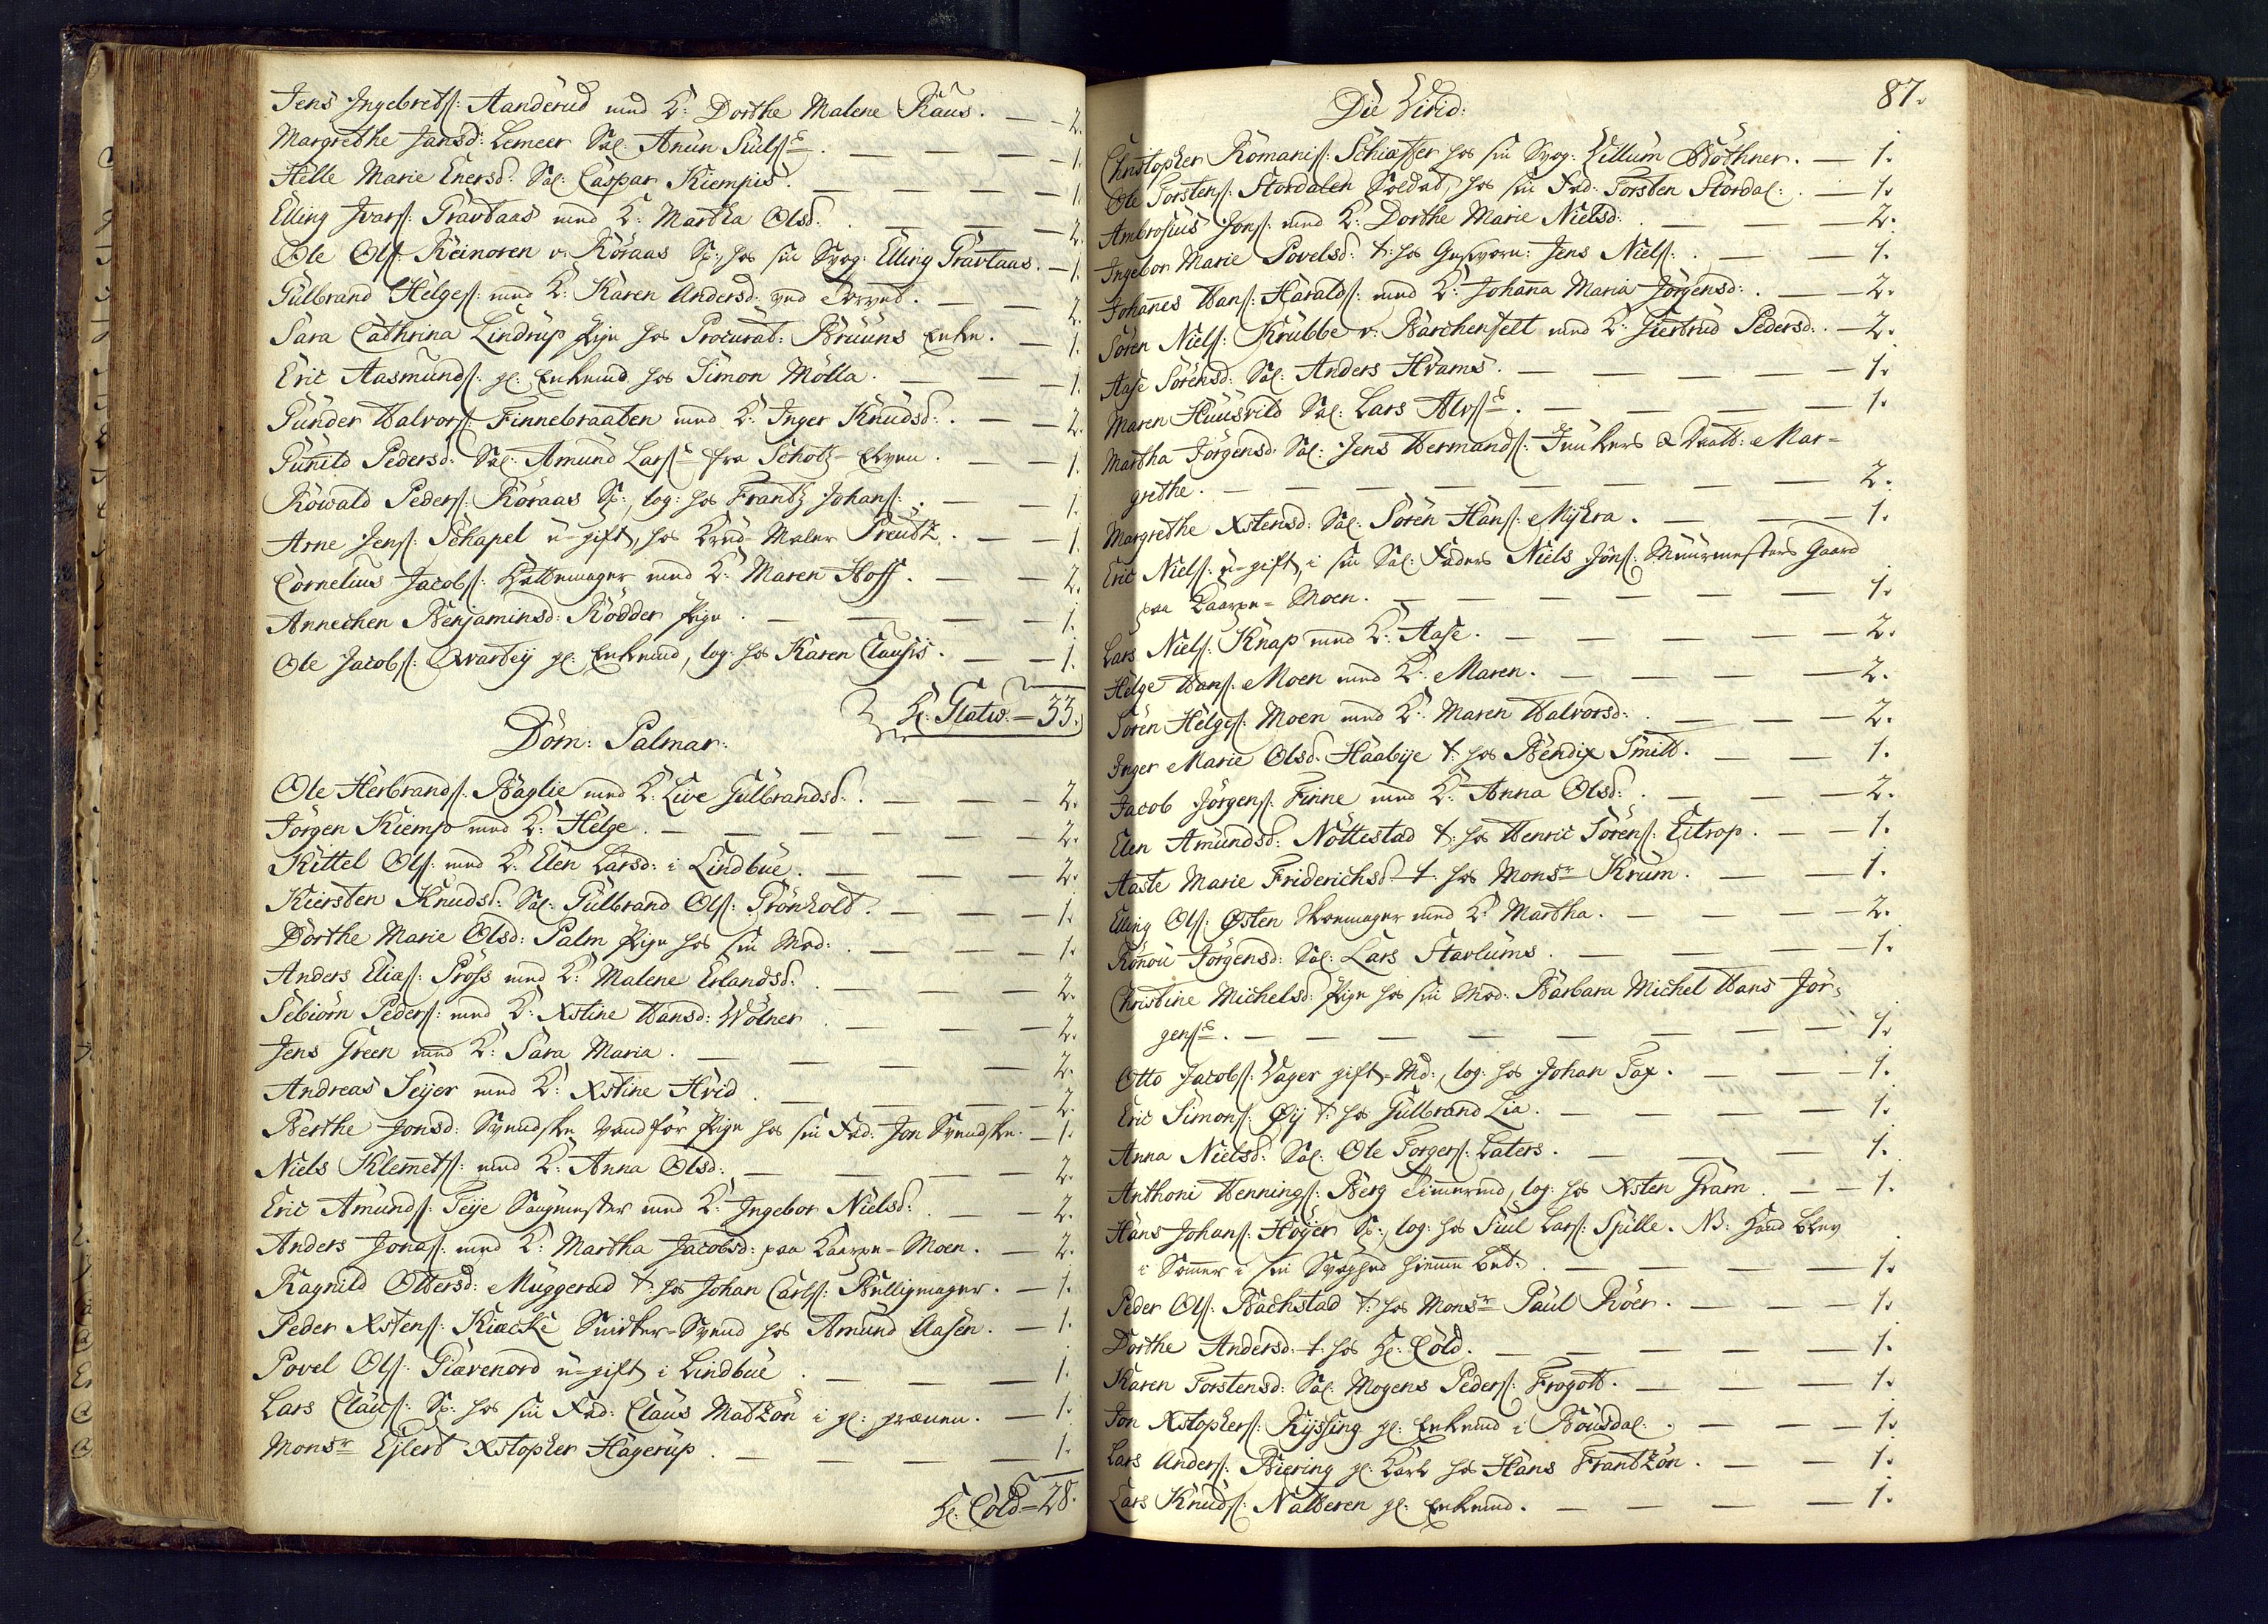 Jens Ingebretß: Aanderud med K: Dorthe Malene Raus. — 2.
Margrethe Jansd: Lemeer Sal: Anun Siulßs. — 1.
Helle Marie Enersd: Sal: Caspar Kiempes. — 1.
Elling Ivarß: Gravtaas med K: Martha Olsd: — 2.
Ole Olß: Reinoren v. Röraas hos sin Svog: Elling Gravtaas. — 1.
Gulbrand Helgeß: med K: Karen Andersd: — 2.
Sara Cathrina Lindrup Pige hos Procurat: Bruuns Enke. — 1.
Eric Aasmundß: gl: Enkemd hos Simon Molla. — 1.
Gunder Halvorß: Finnebraaten med K: Inger Knudsd: — 2.
Gunild Pedersd: Sal: Amund Larßs fra Schotz-Elven. — 1.
Rowald Pederß: Röraas log: hos Frantz Johanß: — 1.
Arne Jenß: Schapel u-gift, hos Maler Preutz. — 1.
Cornelius Jacobß: Hattemager med K: Maren Hoff. — 2.
Annechen Benjaminsd: Rodder Pige. — 1.
Ole Jacobß: Qvarbeÿ gl: Enkemd, log: hos Karen Clausis. — 1.
H: Glatw. = 33.
Dom: Palmar:
Ole Herbrandß: Baglie med K: Live Gulbrandsd: — 2.
Jörgen Kiemp med K: Helge. — 2.
Kittel Olß: med K: Elen Larsd: i Lindbue. — 2.
Kiersten Knudsd: Sal: Gulbrand Olß: Grönholt. — 1.
Dorthe Marie Olsd: Palm Pige hos sin Mod: — 1.
Anders Eliaß: Pröß med K: Malene Erlandsd: — 2.
Sebiörn Pederß: med K: Xstine Hansd: Wölner — 2.
Jens Green med K: Sara Maria. — 2.
Andreas Seÿer med K: Xstine Hvid. — 2.
Berthe Jonsd: Svendske vandför Pige hos sin Fad: Jon Svendske. — 1.
Niels Klemetß: med K: Anna Olsd: — 2.
Eric Amundß: Teije Saugmester med K: Ingebor Nielsd: — 2.
Anders Jonaß: med K: Martha Jacobsd: paa Kaarpe-Moen. — 2.
Ragnild Ottersd: Muggerud t: hos Johan Carlß: Bælligmager. — 1.
Peder Xstenß: Kiæcke Snidker-Svend hos Amund Aasen. — 1.
Povel Olß: Giævenord u-gift i Lindbue. — 1.
Lars Clausß: hos sin Fad: Claus Matzon i gl: — 1.
Monsr Ejlert Xstopher Hagerup. — 1.
H: Cold = 28.
87.
Die Virid:
Christopher Romanß: Schiæffer hos sin Svog: Villum Böthner. — 1.
Ole Torstenß: Stordalen Soldat, hos sin Fad: Torsten Stordal: — 1.
Ambrosius Jonß: med K: Dorthe Marie Nielsd: — 2.
Ingebor Marie Povelsd: t: hos Jens Nielß: — 1.
Johannes Hanß: Haraldß: med K: Johanna Maria Jörgensd: — 2.
Sören Nielß: Krubbe v: Barchenfelt med K: Giertrud Pedersd: — 2.
Aase Sörensd: Sal: Anders Hvams. — 1.
Maren Huusvild Sal: Lars Alvßs. — 1.
Martha Jörgensd: Sal: Jens Hermandß: Junkers & Datt: Mar=
grethe. — 2.
Margrethe Xstensd: Sal: Sören Hanß: Mÿkra. — 1.
Eric Nielß: u-gift, i sin Sal: Faders Niels Jonß: Muurmesters Gaard
paa Kaarpe-Moen. — 1.
Lars Nielß: Knap med K: Aase. — 2.
Helge Hanß: Moen med K: Maren. — 2.
Sören Helgeß: Moen med K: Maren Halvorsd: — 2.
Inger Marie Olsd: Haabÿe t: hos Bendix Smith. — 1.
Jacob Jörgenß: Finne med K: Anna Olsd: — 2.
Elen Amundsd: Nöttestad t: hos Henric Sörenß: Eitrop. — 1.
Aaste Marie Friderichsd: t: hos Monsr Krum. — 1.
Elling Olß: Østen Skoemager med K: Martha. — 2.
Ronnou Jörgensd: Sal: Lars Starlums. — 1.
Christine Michelsd: Pige hos sin Mod: Barbara Michel Hans Jör=
genßs. — 1.
Otto Jacobß: Vager gift-Md:, log: hos Johan Tax. — 1.
Eric Simonß: Øÿ t: hos Gulbrand Lia. — 1.
Anna Nielsd: Sal: Ole Torgerß: Laters. — 1.
Anthoni Henningß: Berg Timermd, log: hos Xsten Gram. — 1.
Hans Johanß: Höÿer log: hos Siul Larß: Spille. NB: Hand blev
i Sommer i sin Svaghed hiemme bet: — 1.
Peder Olß: Bachstad t: hos Monsr Paul Röer. — 1.
Dorthe Andersd: t: hos H: Cold. — 1.
Karen Torstensd: Sal: Mogens Pederß: Frogott. — 1.
Jon Xstopherß: Ryssing gl: Enkemd i Rousdal: — 1.
Lars Anderß: Biering gl: Karl hos Hans Frantzön. — 1.
Lars Knudß: Natteren gl: Enkemd. — 1.